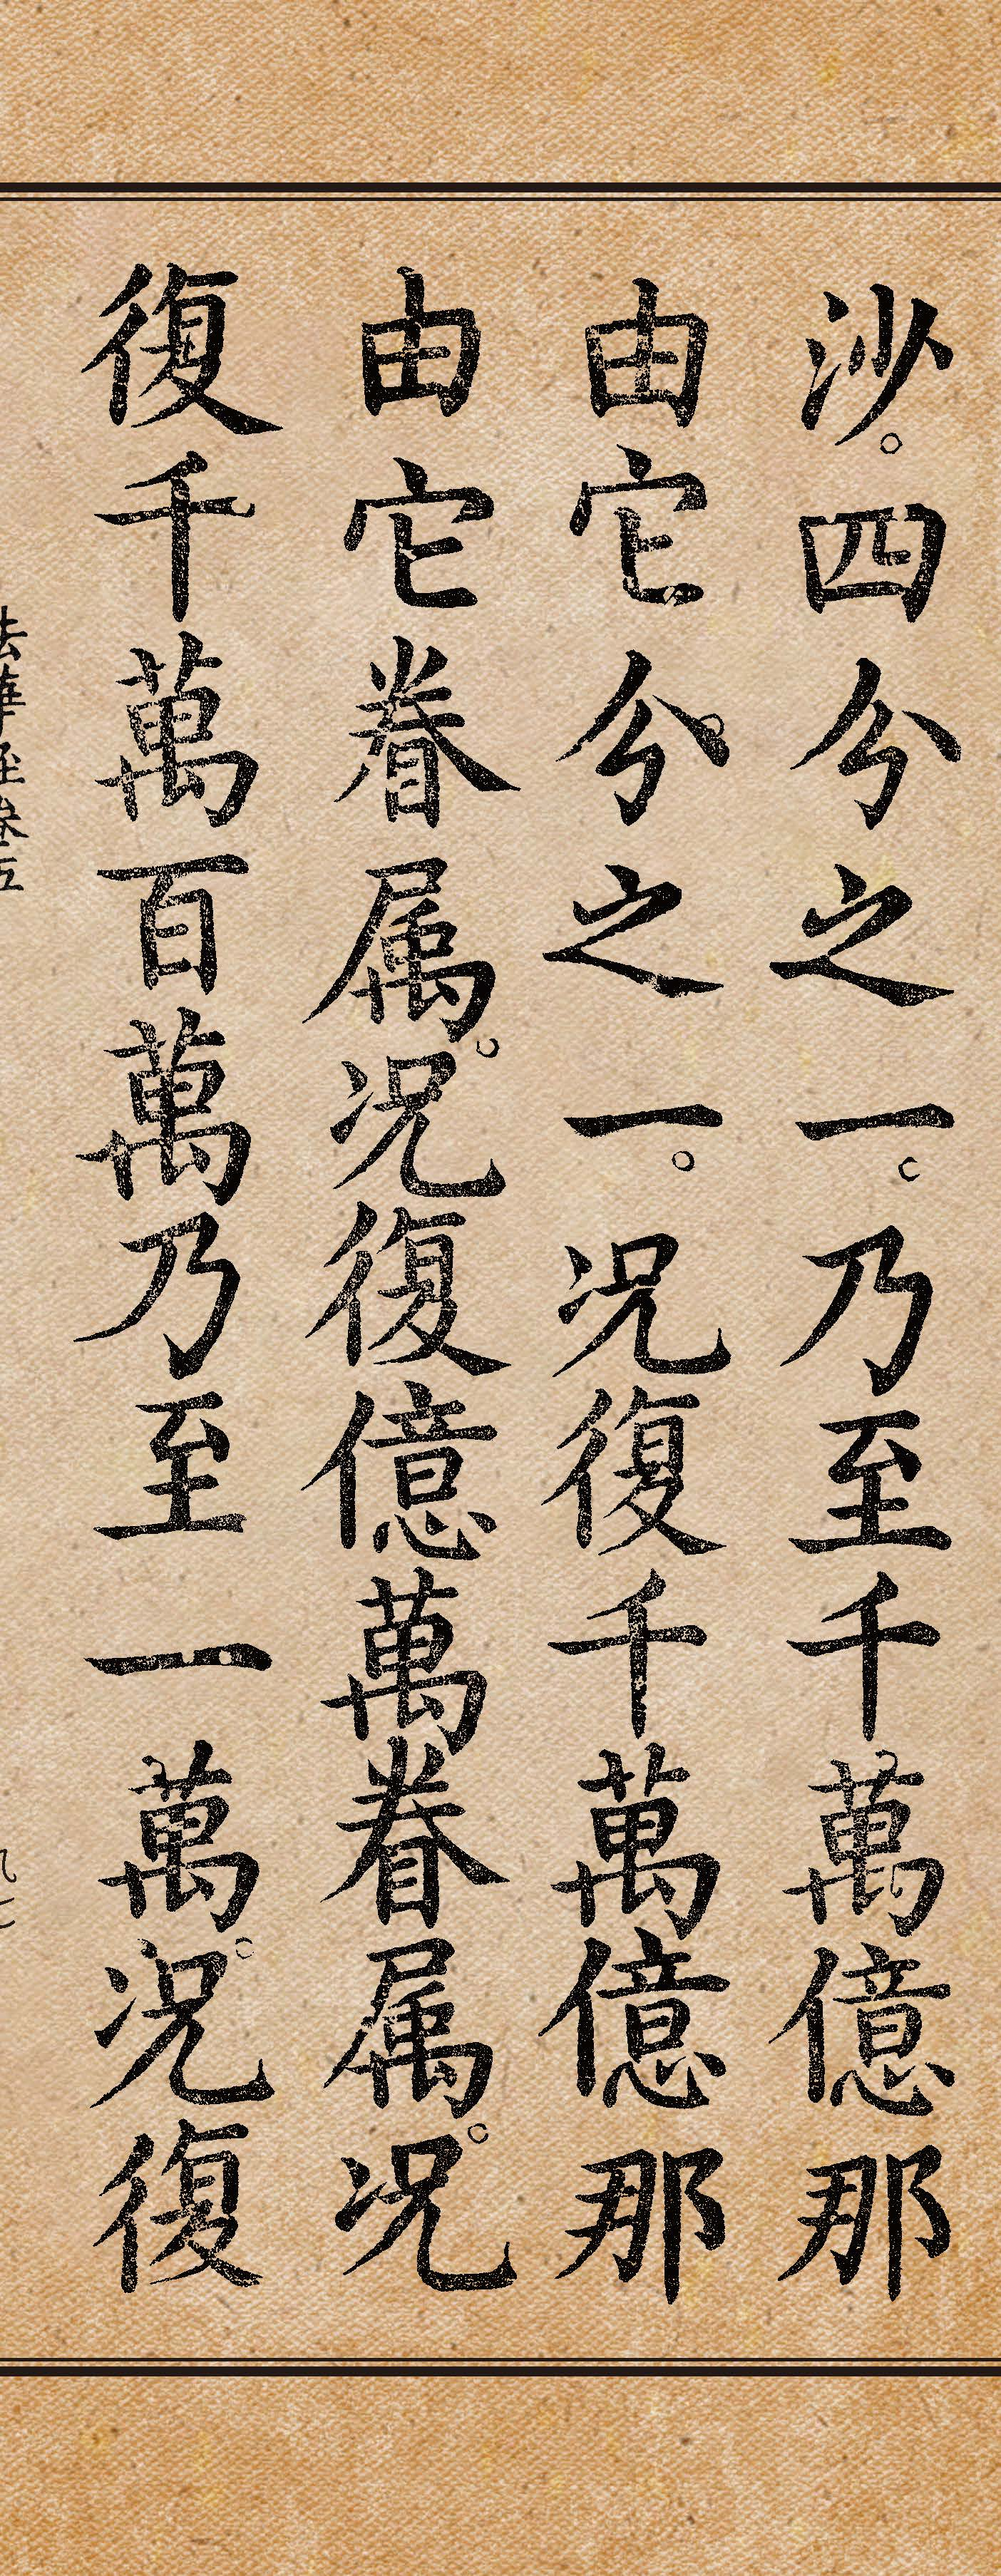 沙。四分之一。乃至千萬億那
由它。分之一。况復千萬億那
由它眷属。况復億萬眷属。况
復千萬百萬乃至一萬。况復
法華経巻五